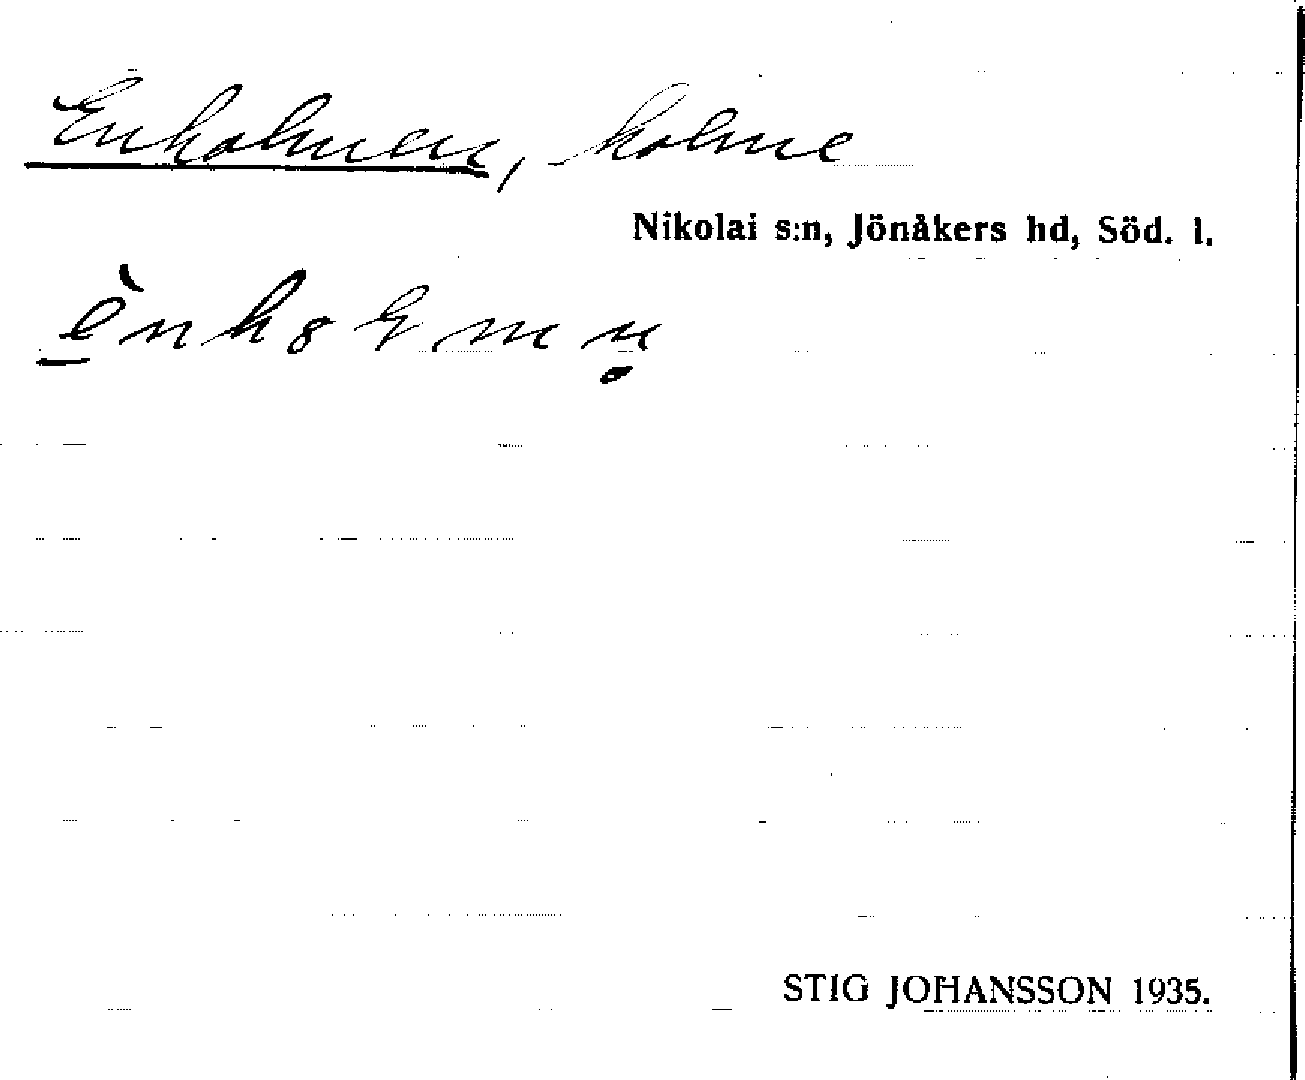 Enholmen, holme
Nikolai s:n, Jönåkers hd, Söd. l.
STIG JOHANSSON 1935.